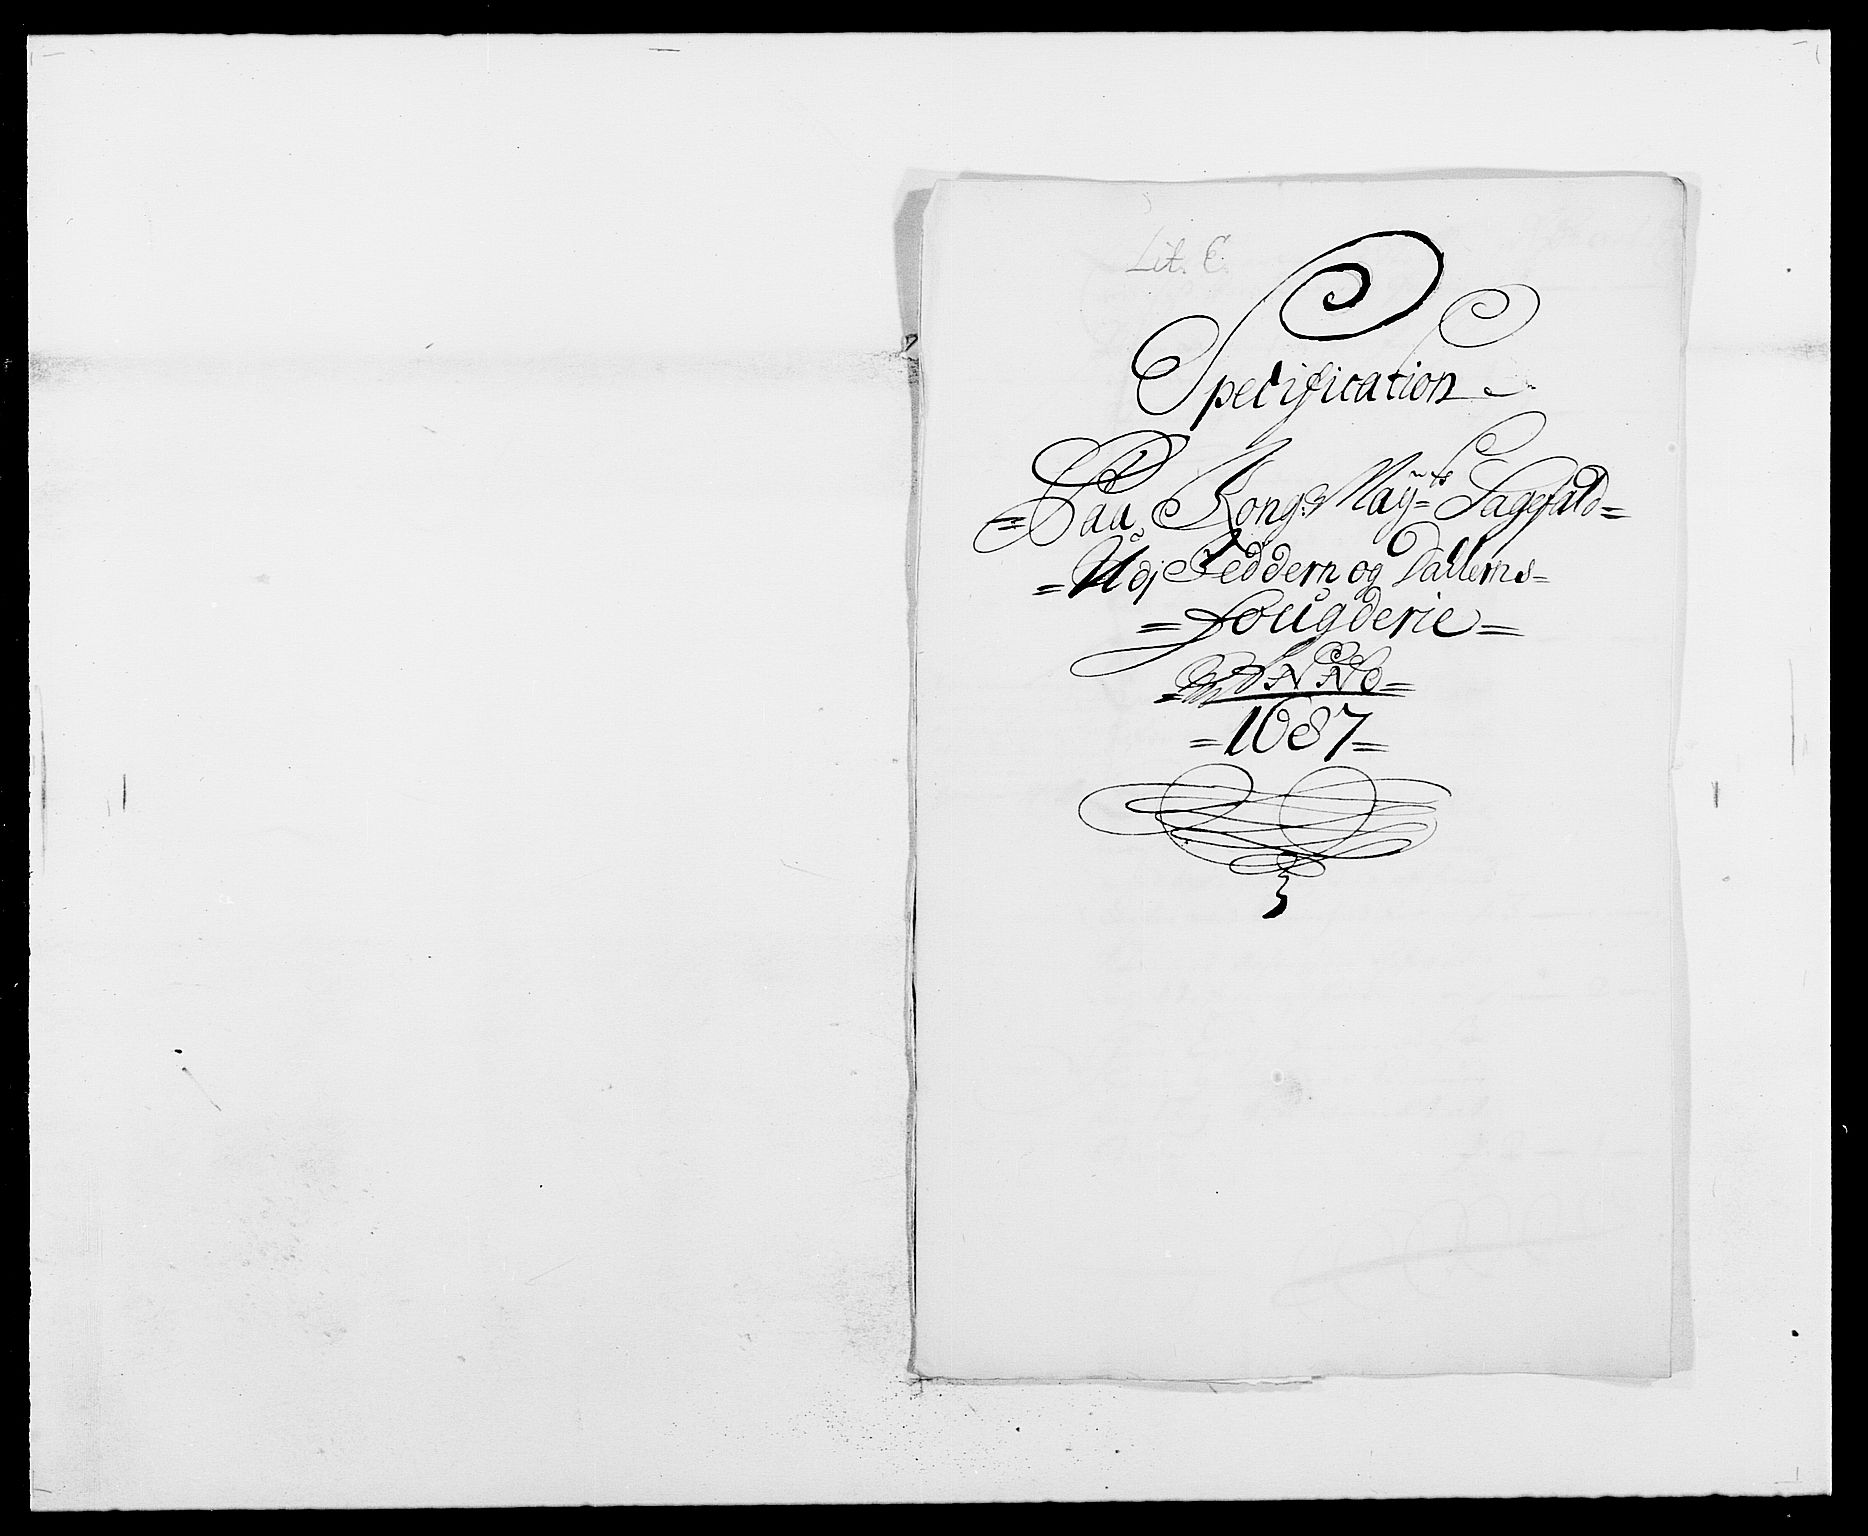 Lit. E.
Specification
Paa Kongs: Maÿ:ts Sagefald
Udj Jeddern og Dallerns
Fougderie
ANNO
1687